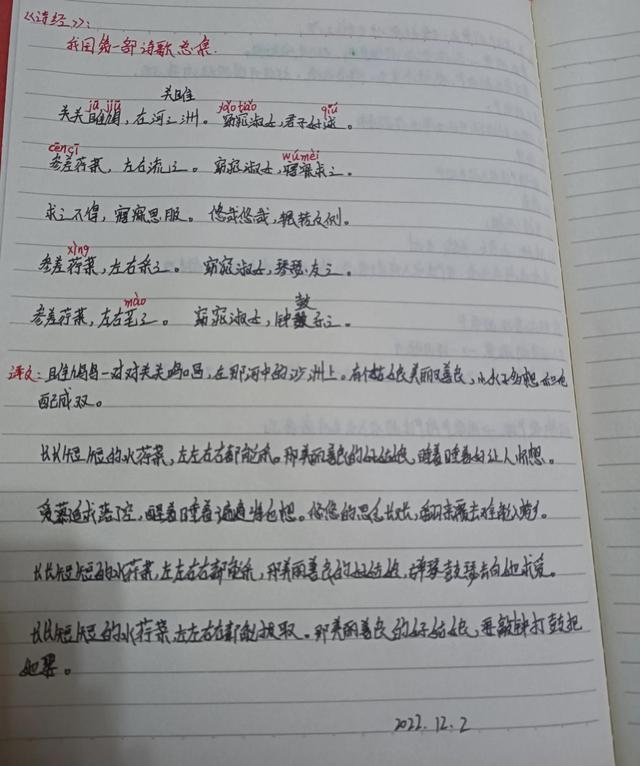 《诗经》:
我国第一部诗歌总集.
关雎
jū jiū yǎo tiǎo qiú
关关雎鸠,在河之洲。窈窕淑女,君子好逑。
cēn cī wù mèi
参差荇菜,左右流之。窈窕淑女,寤寐求之。
求之不得,寤寐思服。悠哉悠哉,辗转反侧。
xìng
参差荇菜,左右采之。窈窕淑女,琴瑟友之。
mào 鼓
参差荇菜,左右芼之。窈窕淑女,钟乐之。
译文:雎鸠鸟一对对关关鸣唱,在那河中的沙洲上。有个姑娘美丽又善良,
配成双。
长长短短的水荇菜,左左右右都能采。那美丽善良的好姑娘,睡着醒着好让人怀想。
爱慕追求落了空,醒着睡着遍遍想。悠悠的思念长长,翻来覆去难入梦乡。
长长短短的水荇菜,左左右右都能采,那美丽善良的好姑娘,弹琴鼓瑟去向她求爱。
长长短短的水荇菜,左左右右都能拔取。那美丽善良的好姑娘,要敲钟打鼓把
她娶。
2022.12.2